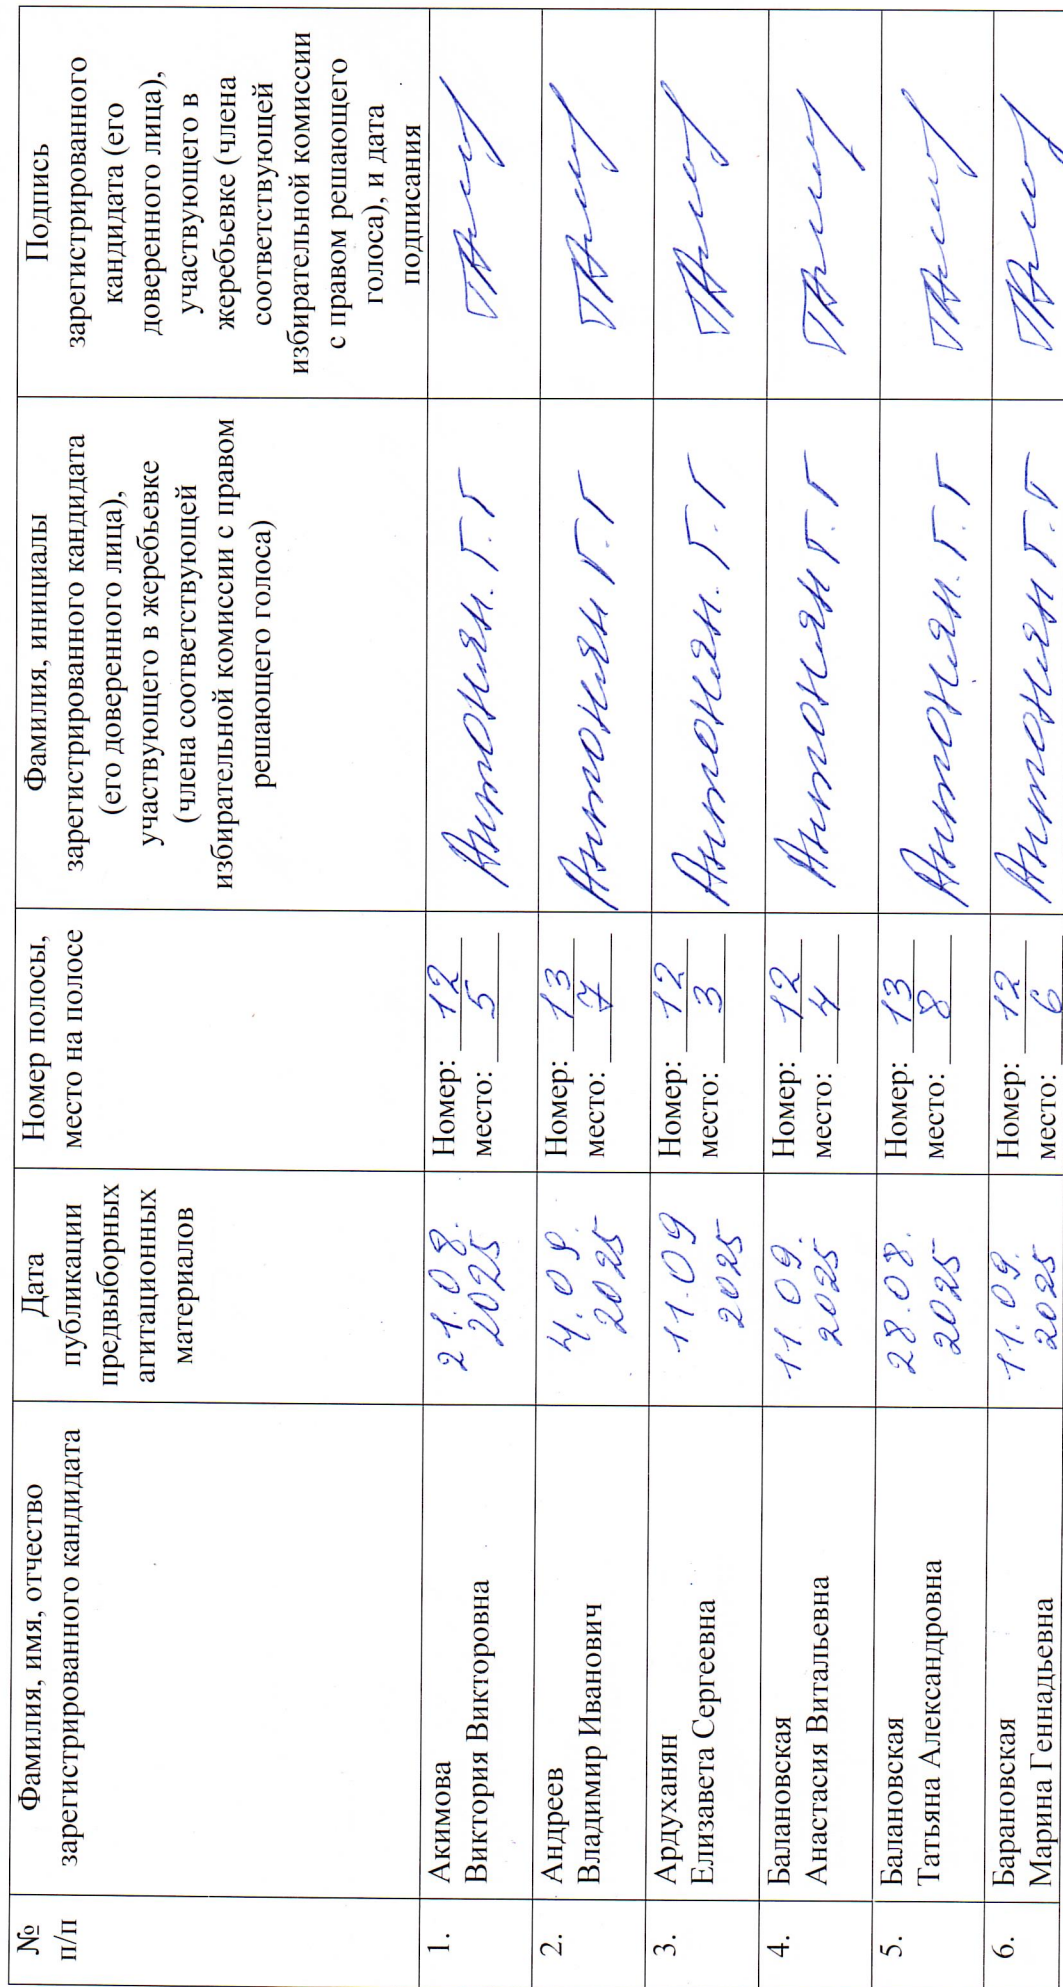 №
п/п
Фамилия, имя, отчество
зарегистрированного кандидата
Дата
публикации
предвыборных
агитационных
материалов
Номер полосы,
место на полосе
Фамилия, инициалы
зарегистрированного кандидата
(его доверенного лица),
участвующего в жеребьевке
(члена соответствующей
избирательной комиссии с правом
решающего голоса)
Подпись
зарегистрированного
кандидата (его
доверенного лица),
участвующего в
жеребьевке (члена
соответствующей
избирательной комиссии
с правом решающего
голоса), и дата
подписания
1.
Акимова
Виктория Викторовна
21.08.
2025
Номер: 12
место: 5
Антонян. Г. Г
2.
Андреев
Владимир Иванович
4.09.
2025
Номер: 13
место: 7
Антонян Г. Г
3.
Ардуханян
Елизавета Сергеевна
11.09
2025
Номер: 12
место: 3
Антонян. Г. Г
4.
Балановская
Анастасия Витальевна
11.09.
2025
Номер: 12
место: 4
Антонян Г. Г
5.
Балановская
Татьяна Александровна
28.08.
2025
Номер: 13
место: 8
Антонян. Г. Г
6.
Барановская
Марина Геннадьевна
11.09.
2025
Номер: 12
место: 6
Антонян Г. Г